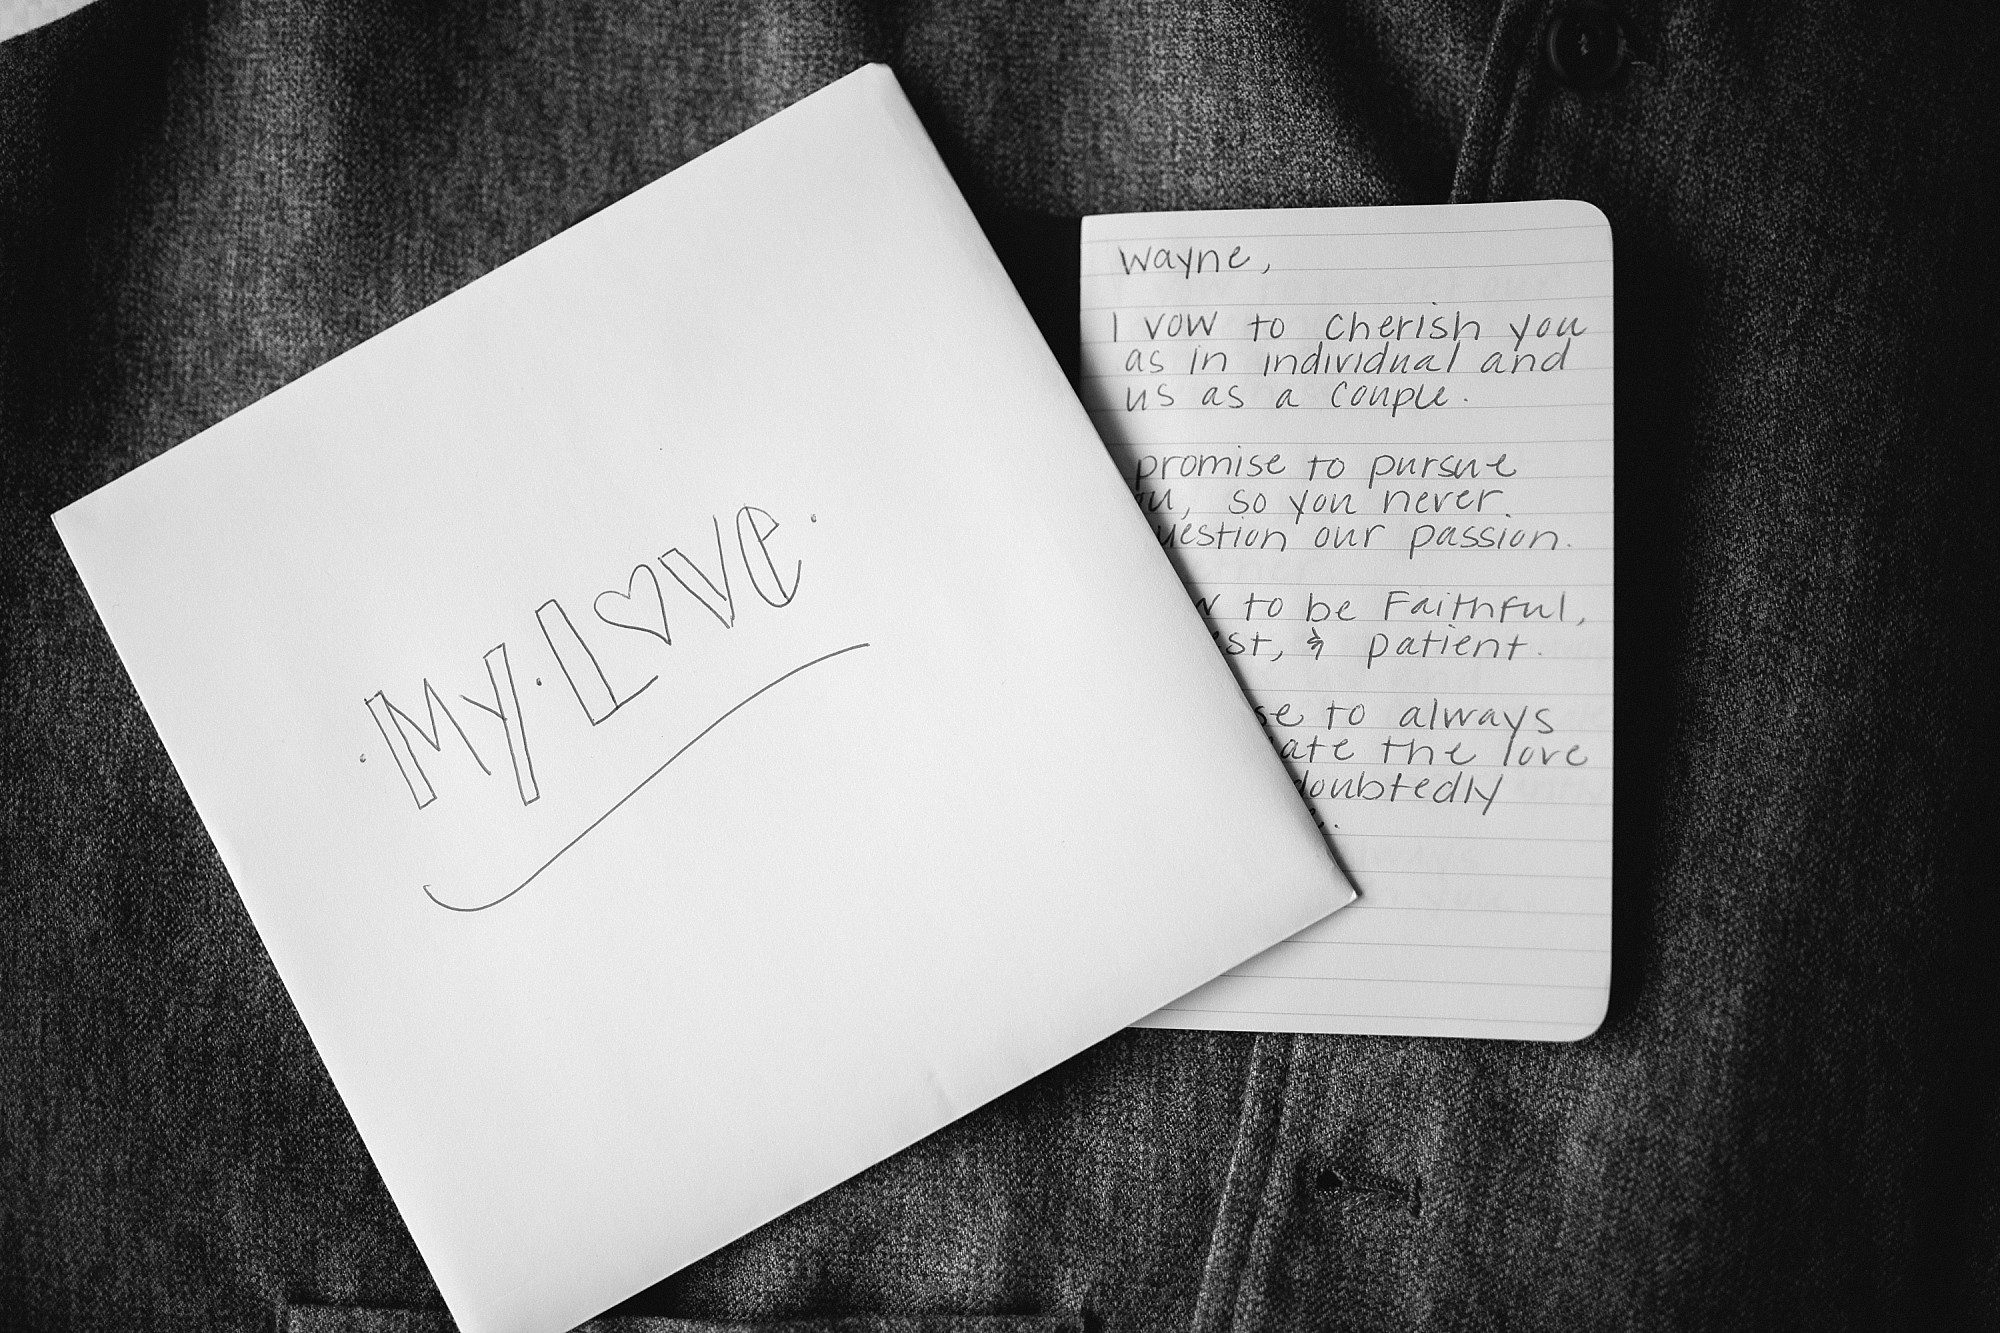 My · Love ·
Wayne,
I vow to cherish you
as in individual and
us as a couple.
promise to pursue
so you never
question our passion.
to be Faithful,
& patient.
to always
the love
doubtedly